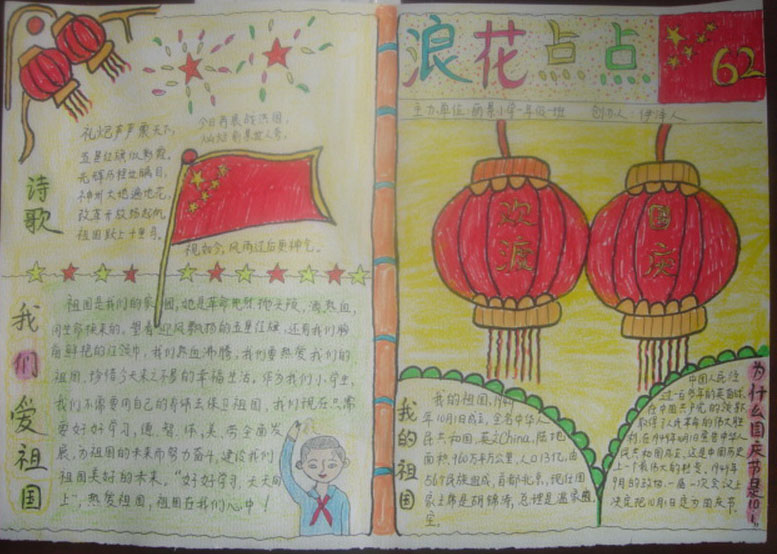 浪花点点
62
主办单位:丽景小学一年级一班 创办人:伊泽人
欢渡
国庆
诗歌
礼炮声声震天下,
五星红旗似彩霞,
光辉历程世瞩目,
神州大地遍地花,
改革开放扬起帆,
祖国
今日再展战洪图,
灿烂前景世人夸。
视如今,风雨过后更神气。
我们爱祖国
祖国是我们的家园,她是革命先烈抛头颅,洒热血,
用生命换来的。望着迎风飘扬的五星红旗,还有我们胸
前鲜艳的红领巾,我们热血沸腾,我们要热爱我们的
祖国,珍惜今天来之不易的幸福生活。作为我们小学生,
我们不需要用自己的身体去保卫祖国,我们现在只需
要好好学习,德、智、体、美、劳全面发
展,为祖国的未来而努力奋斗,建设我们
祖国美好的未来。"好好学习,天天向
上",热爱祖国,祖国在我们心中!
我的祖国
我的祖国,1949
年10月1日成立,全名中华人
民共和国,英文China,陆地
面积960万平方公里,人口13亿,由
56个民族组成,首都北京,现任国
家主席是胡锦涛,总理是温家宝。
为什么国庆节是10.1。
中国人民经
过一百多年的英勇
在中国共产党的领导
取得了人民革命的伟大胜
利,在1949年10月1日宣告中华人
民共和国成立,这是中国历史
上一个最伟大的转变。1949年
9月的政协一届一次会议上
决定把10月1日定为国庆节。